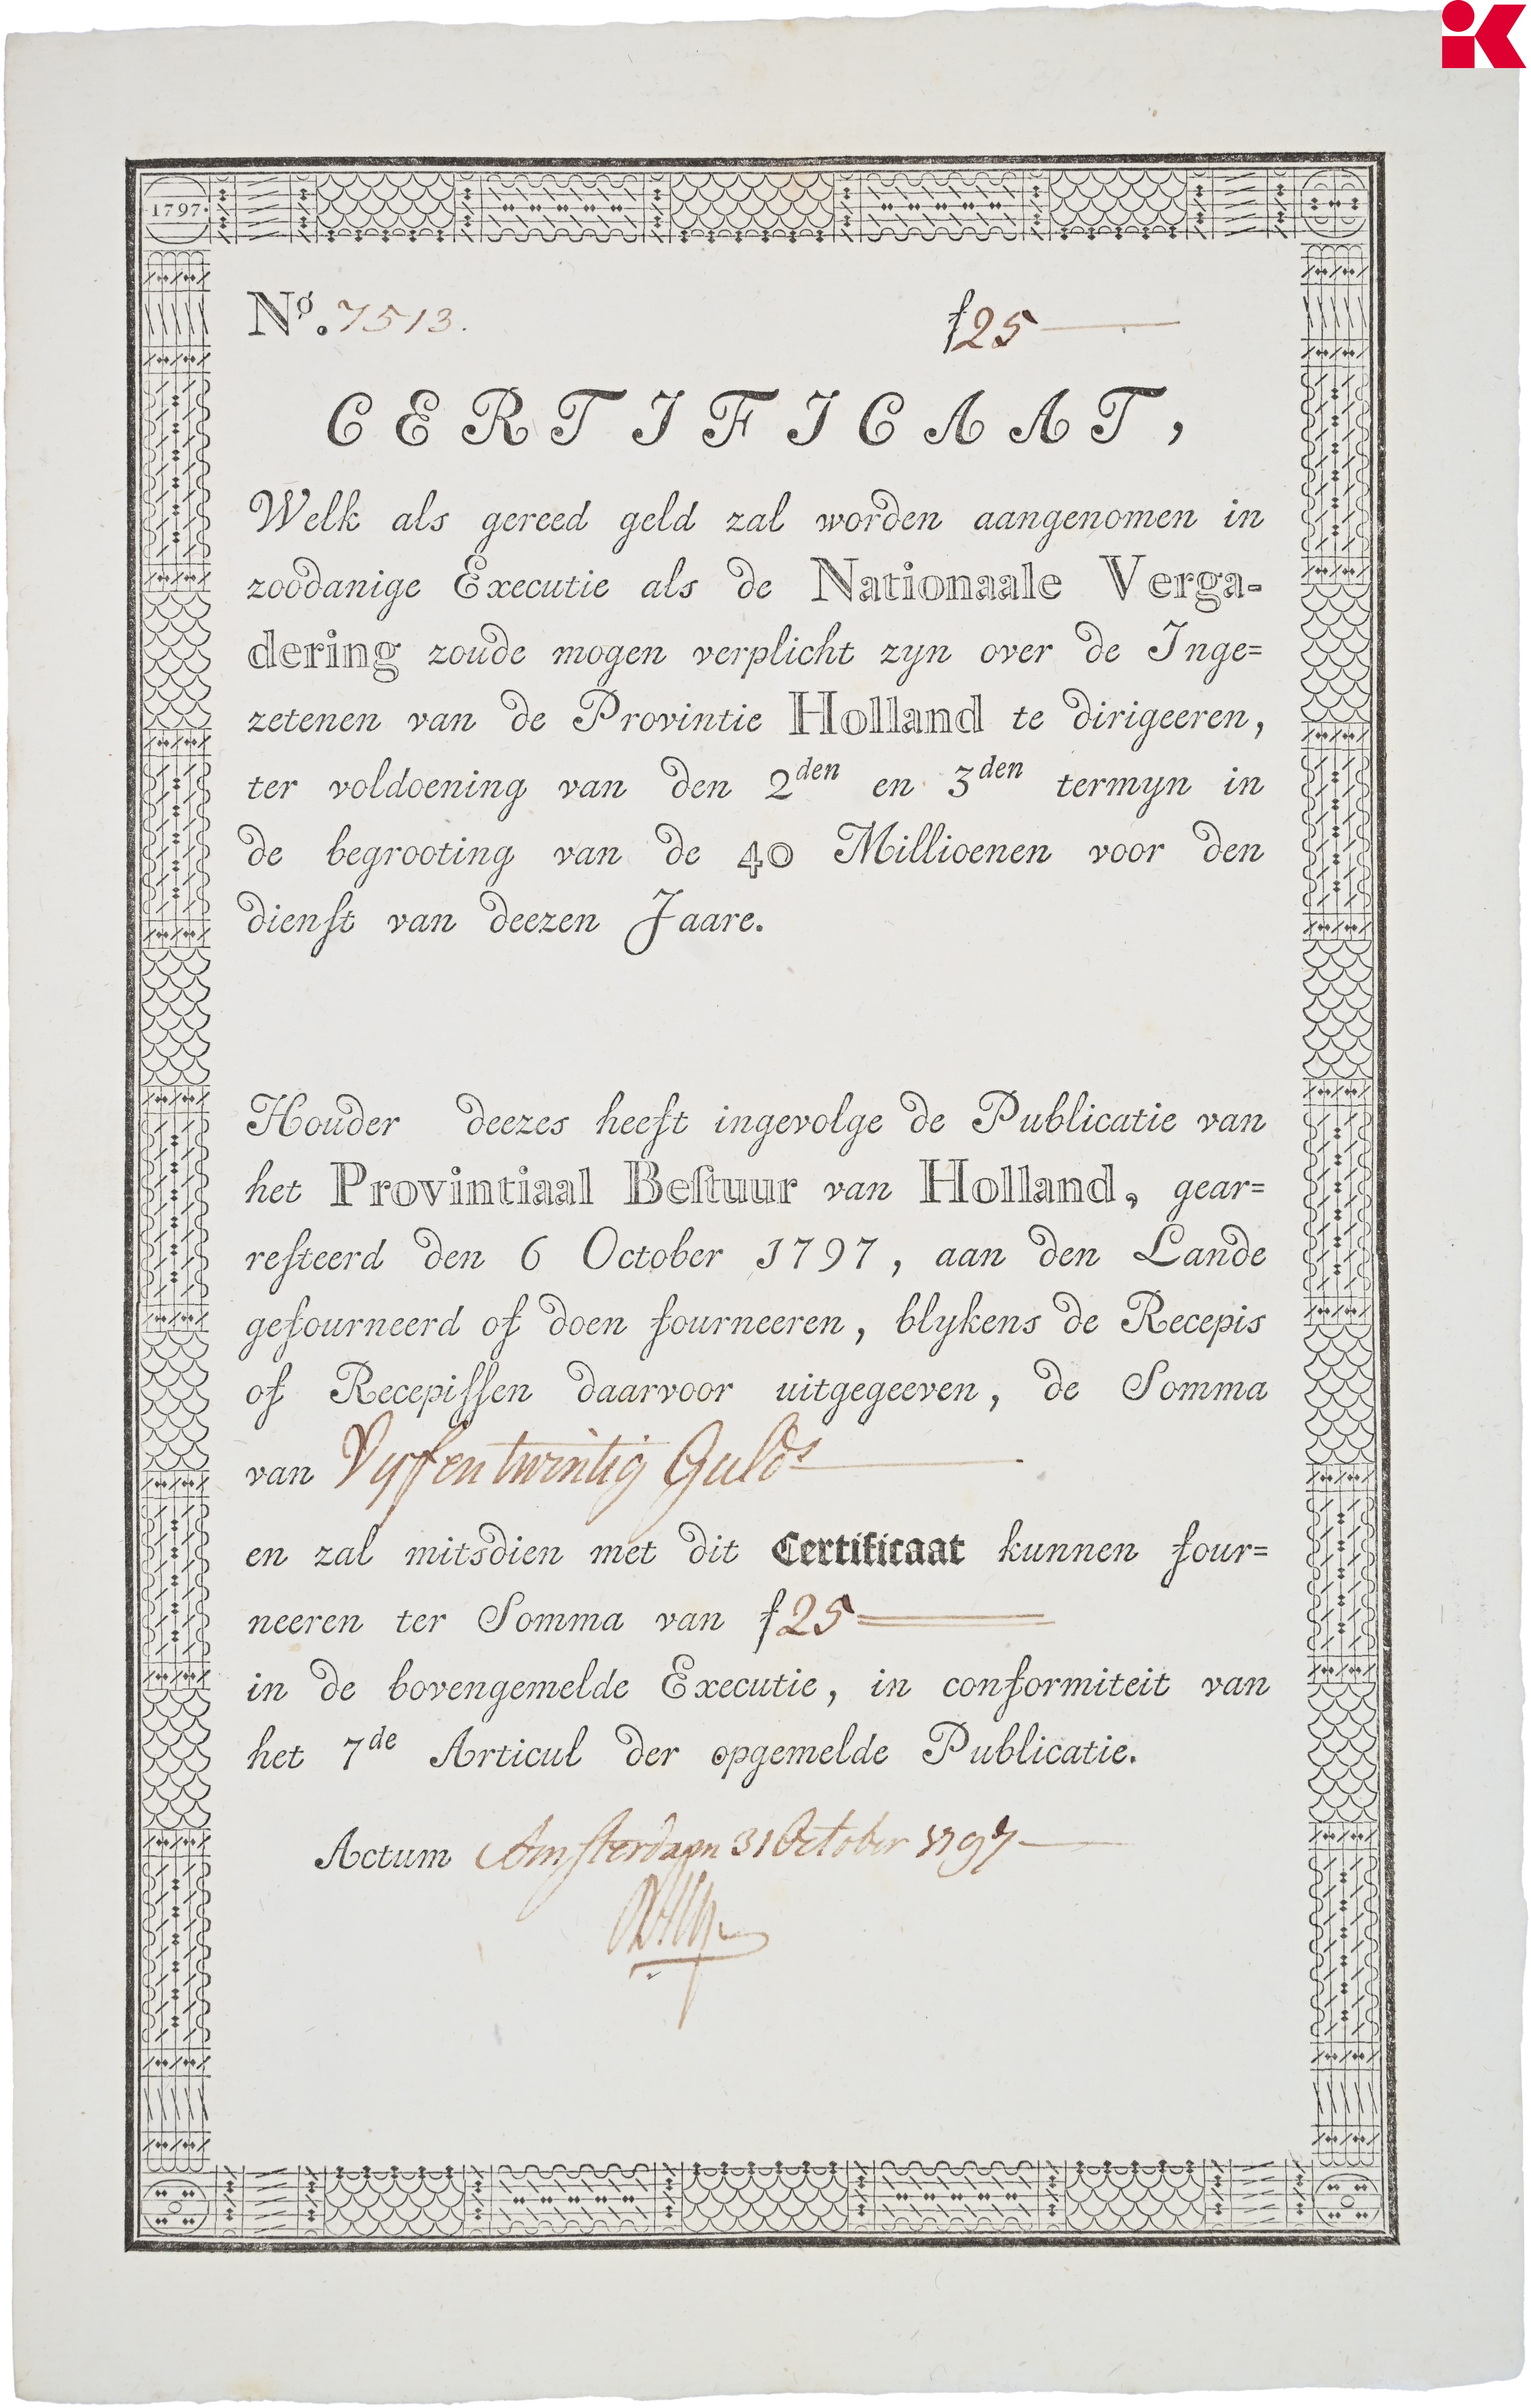 1797.
Nº. 7513. ƒ25
CERTIFICAAT,
Welk als gereed geld zal worden aangenomen in
zoodanige Executie als de Nationaale Verga=
dering zoude mogen verplicht zyn over de Inge=
zetenen van de Provintie Holland te dirigeeren,
ter voldoening van den 2den en 3den termyn in
de begrooting van de 40 Millioenen voor den
dienſt van deezen Jaare.
Houder deezes heeft ingevolge de Publicatie van
het Provintiaal Beſtuur van Holland, gear=
reſteerd den 6 October 1797, aan den Lande
gefourneerd of doen fourneeren, blykens de Recepis
of Recepiſſen daarvoor uitgegeeven, de Somma
van Vyfentwintig Gulds
en zal mitsdien met dit Certificaat kunnen four=
neeren ter Somma van ƒ25
in de bovengemelde Executie, in conformiteit van
het 7de Articul der opgemelde Publicatie.
Actum Amſterdam 31 October 1797